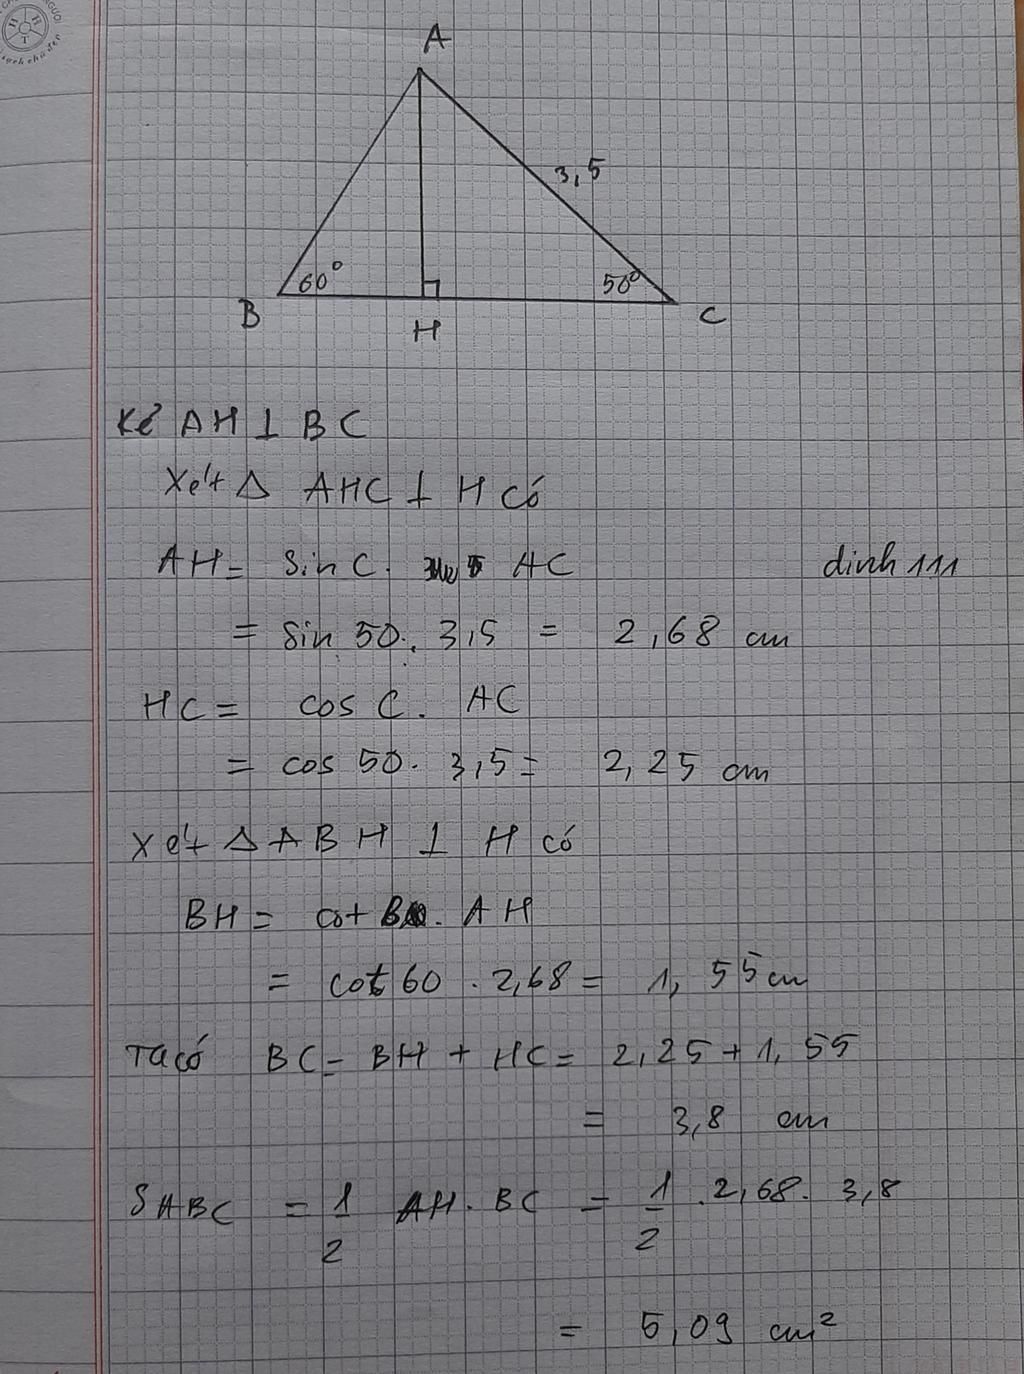 A
3,5
60° 50°
B H C
Kẻ AH ⊥ BC
Xét Δ AHC ⊥ H có
AH = Sin C. AC
dinh 111
= Sin 50. 3,5 = 2,68 cm
HC = cos C. AC
= cos 50. 3,5 = 2,25 cm
Xét Δ ABH ⊥ H có
BH = cot B. AH
= cot 60 . 2,68 = 1,55 cm
Ta có BC = BH + HC = 2,25 + 1,55
= 3,8 cm
SABC = 1/2 AH. BC = 1/2 . 2,68. 3,8
= 5,09 cm²